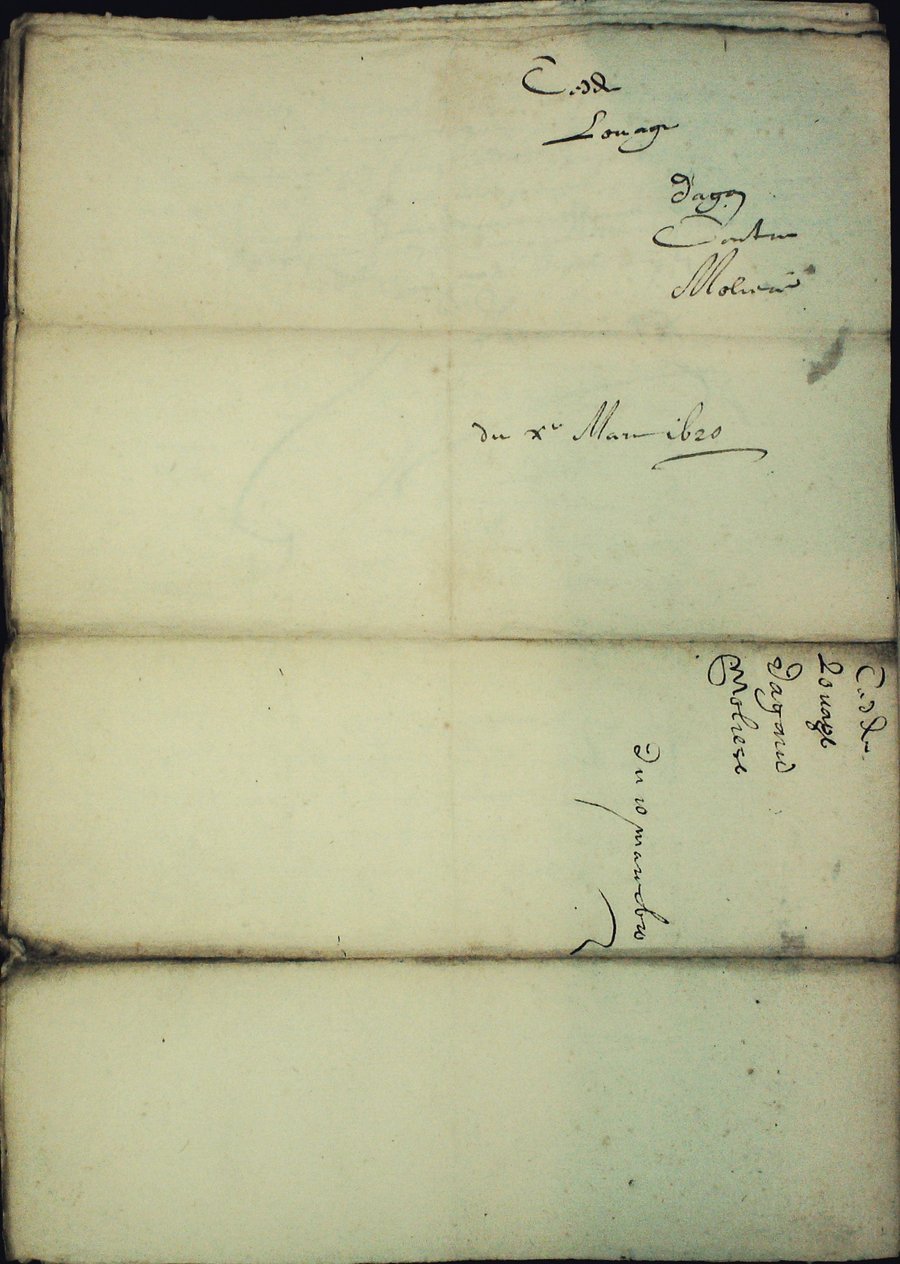 Cedde
Louage
Dagan
Contre
Moliere
du xe Mars 1620
Cedde
Louage
Dagand
Moliere
Du 10 mars 1620